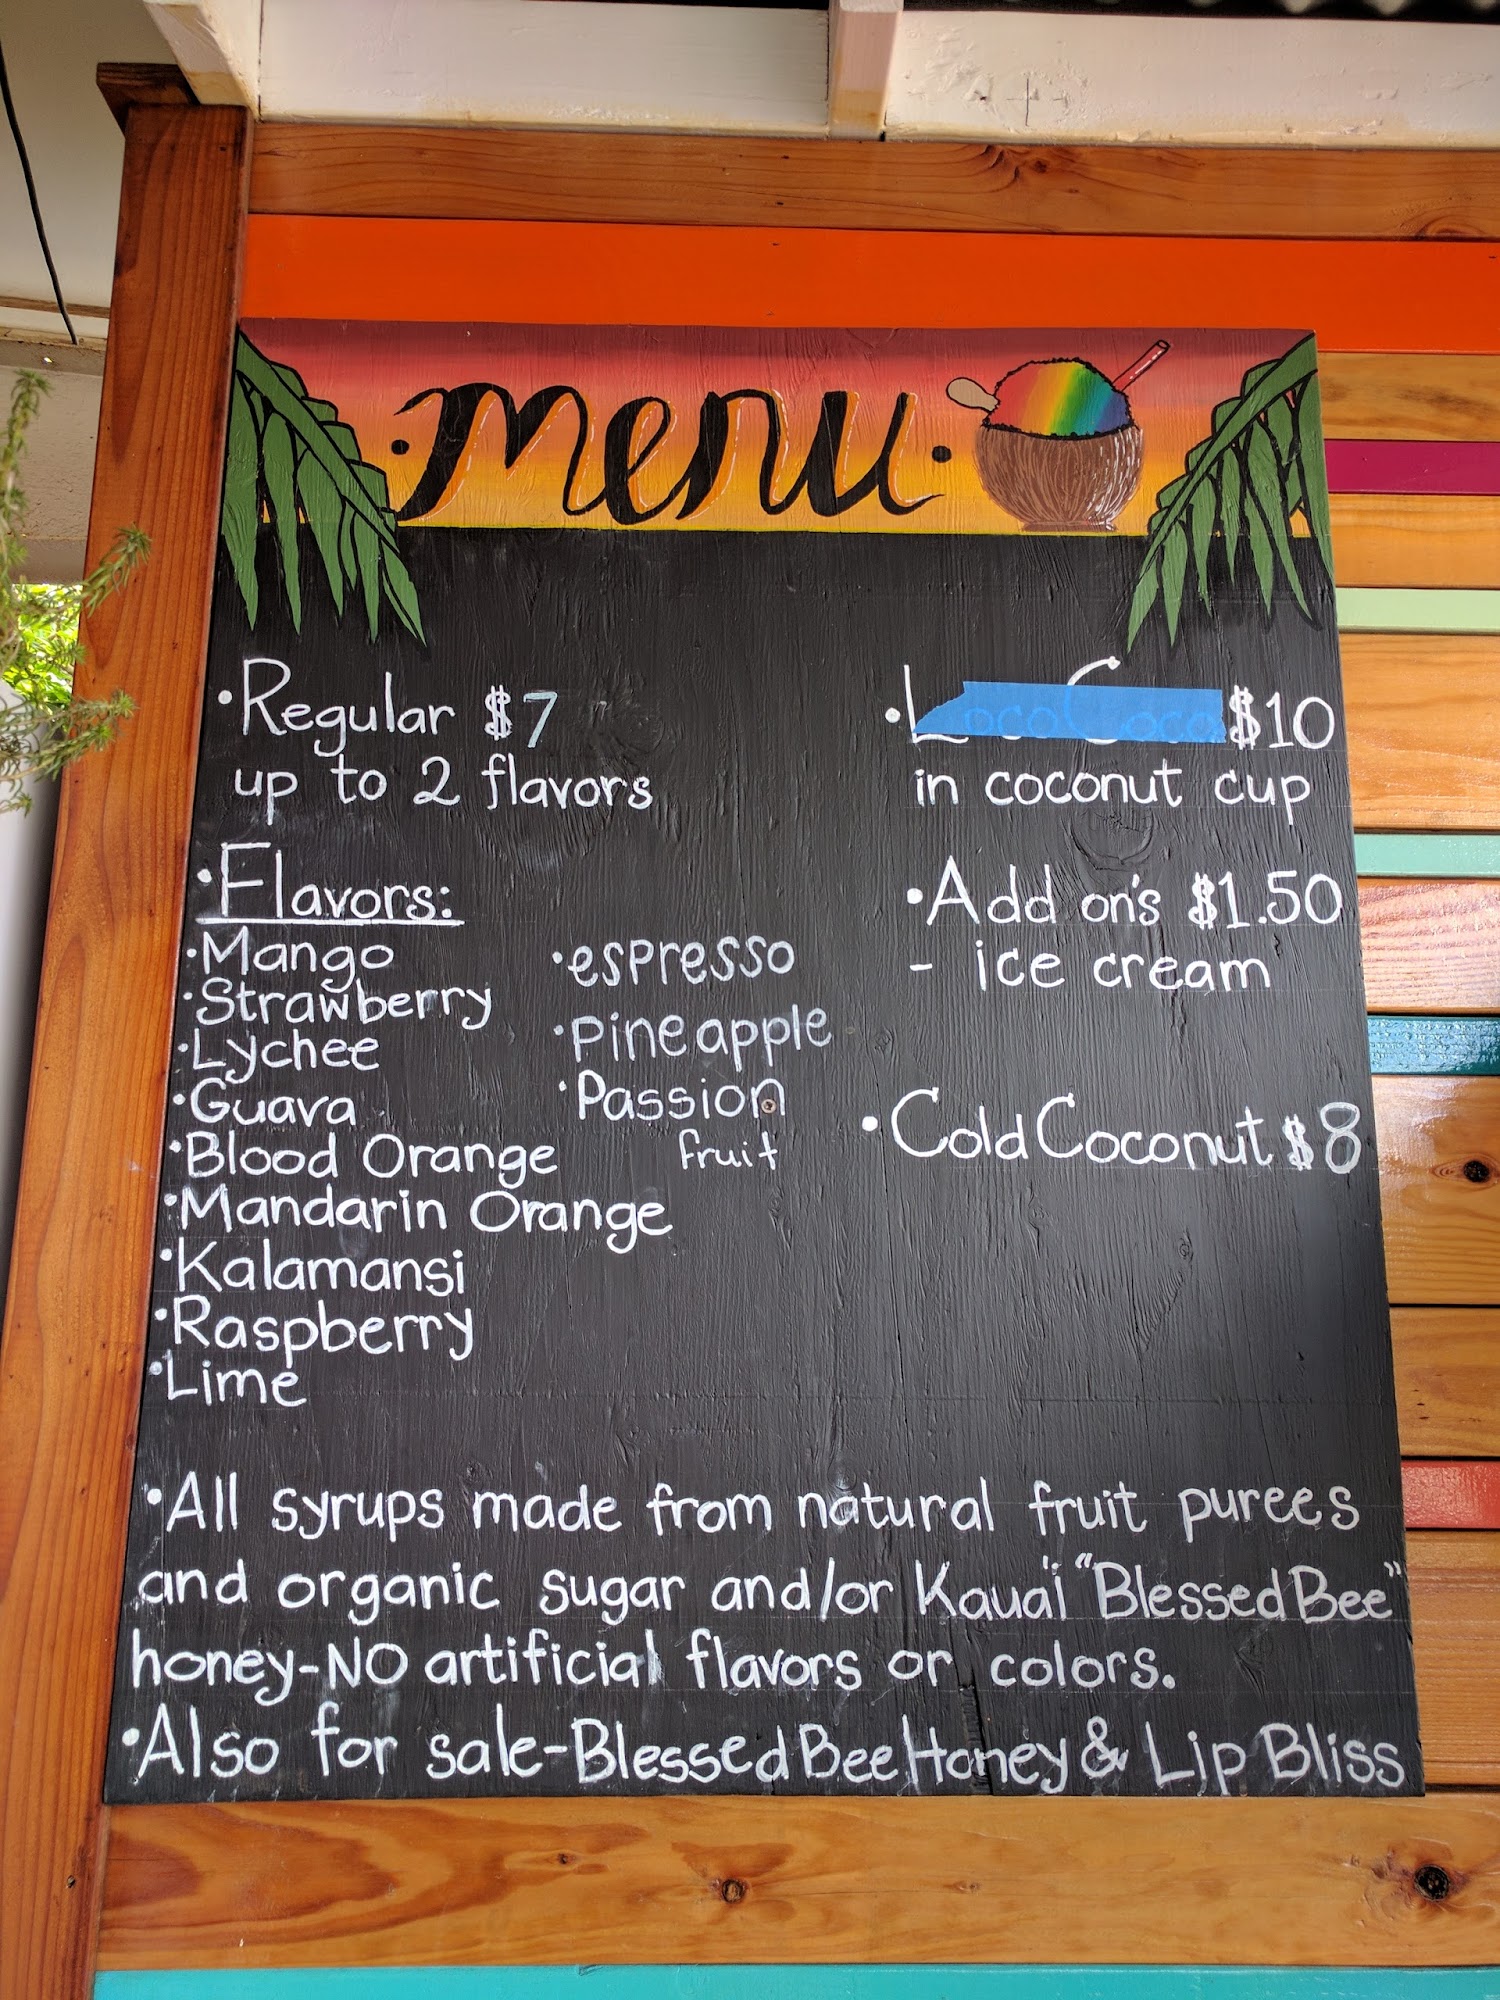 menu
•Regular $7
up to 2 flavors
•Loco Coco $10
in coconut cup
•Add on's $1.50
- ice cream
•Cold Coconut $8
•Flavors:
•Mango
•Strawberry
•Lychee
•Guava
•Blood Orange
•Mandarin Orange
•Kalamansi
•Raspberry
•Lime
•espresso
•Pineapple
•Passion
fruit
•All syrups made from natural fruit purees
and organic sugar and/or Kauai "Blessed Bee"
honey-NO artificial flavors or colors.
•Also for sale-Blessed Bee Honey & Lip Bliss